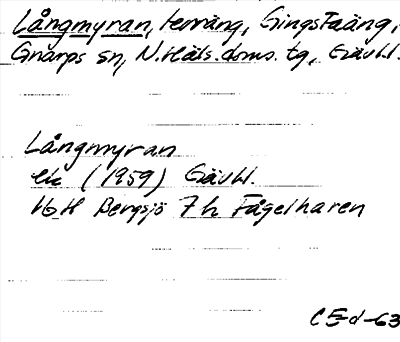 Långmyran, terräng, Gingstaäng,
Gnarps sn, N. Häls. doms. tg, Gävhl.
Långmyran
ek (1959) Gävhl.
16 H Bergsjö 7 h Fågelharen
C5-d-63